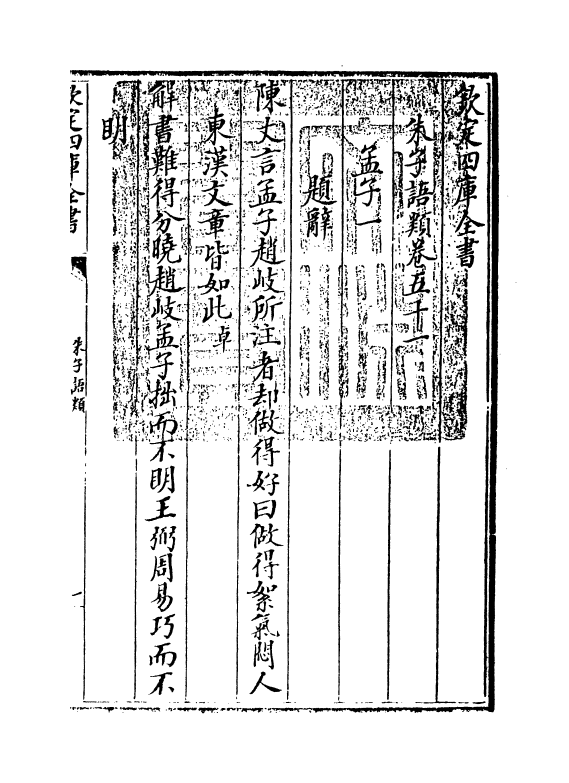 欽定四庫全書
朱子語類卷五十一
孟子一
題辭
陳丈言孟子趙岐所注者却做得好曰做得絮氣悶人
東漢文章皆如此卓
解書難得分曉趙岐孟子拙而不明王弼周易巧而不
明
欽定四庫全書
朱子語類
一